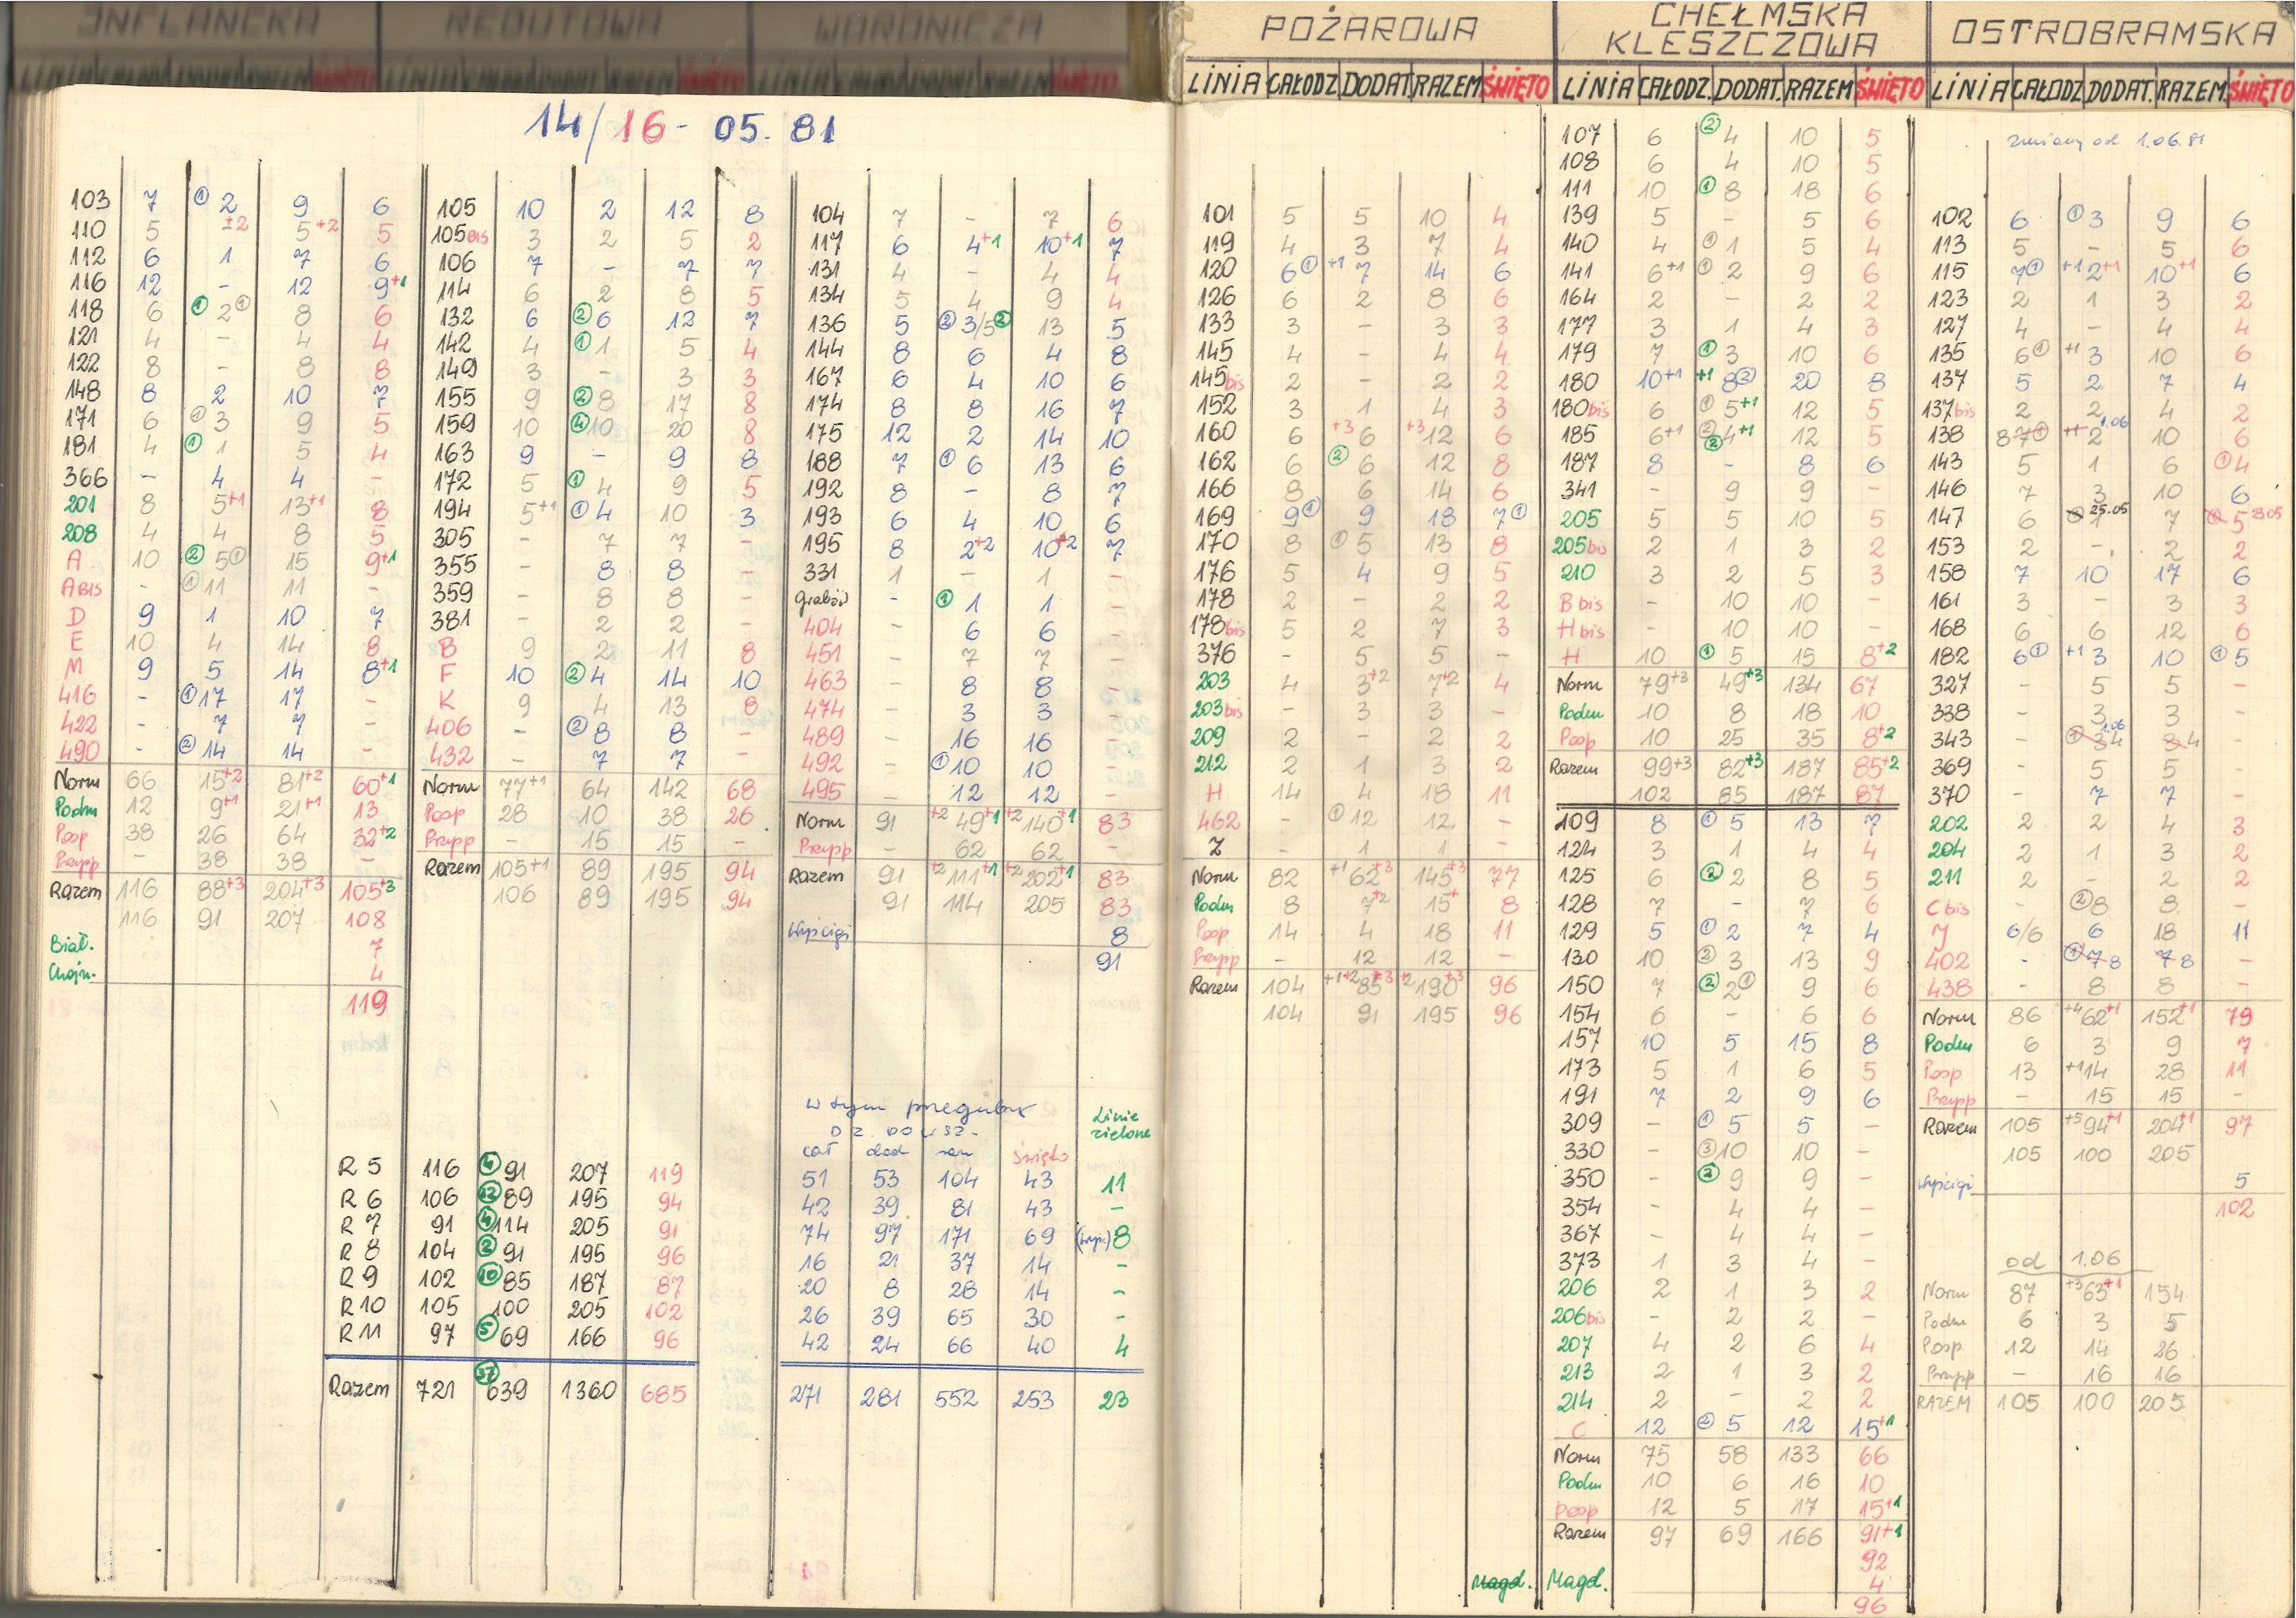 INFLANCKA
REDUTOWA
WORONICZA
POŻAROWA
CHEŁMSKA
KLESZCZOWA
OSTROBRAMSKA
LINIA CAŁODZ DODAT RAZEM ŚWIĘTO
LINIA CAŁODZ. DODAT. RAZEM ŚWIĘTO
LINIA CAŁODZ DODAT. RAZEM. ŚWIĘTO
14/16-05.81
103 7 ① 2 9 6
110 5 ±2 5+2 5
112 6 1 7 6
116 12 - 12 9+1
118 6 ① 2 ① 8 6
121 4 - 4 4
122 8 - 8 8
148 8 2 10 7
171 6 ① 3 9 5
181 4 ① 1 5 4
366 - 4 4 -
201 8 5+1 13+1 8
208 4 4 8 5
A 10 ② 5 ① 15 9+1
A BIS - ① 11 11 -
D 9 1 10 7
E 10 4 14 8
M 9 5 14 8+1
416 - ① 17 17 -
422 - 7 7 -
490 - ② 14 14 -
Norm 66 15+2 81+2 60+1
Podm 12 9+1 21+1 13
Posp 38 26 64 32+2
Przysp - 38 38 -
Razem 116 88+3 204+3 105+3
116 91 207 108
Biał. 7
Chojn. 4
119
105 10 2 12 8
105bis 3 2 5 2
106 7 - 7 7
114 6 2 8 5
132 6 ② 6 12 7
142 4 ① 1 5 4
149 3 - 3 3
155 9 ② 8 17 8
159 10 ④ 10 20 8
163 9 - 9 8
172 5 ① 4 9 5
194 5+1 ① 4 10 3
305 - 7 7 -
355 - 8 8 -
359 - 8 8 -
381 - 2 2 -
B 9 2 11 8
F 10 ② 4 14 10
K 9 4 13 8
406 - ② 8 8 -
432 - 7 7 -
Norm 77+1 64 142 68
Posp 28 10 38 26
Przysp - 15 15 -
Razem 105+1 89 195 94
106 89 195 94
104 7 - 7 6
117 6 4+1 10+1 7
131 4 - 4 4
134 5 4 9 4
136 5 ② 3/5 ② 13 5
144 8 6 4 8
167 6 4 10 6
174 8 8 16 7
175 12 2 14 10
188 7 ① 6 13 6
192 8 - 8 7
193 6 4 10 6
195 8 2+2 10+2 7
331 1 - 1 -
Grabów - ① 1 1 -
404 - 6 6 -
451 - 7 7 -
463 - 8 8 -
474 - 3 3 -
489 - 16 16 -
492 - ① 10 10 -
495 - 12 12 -
Norm 91 +2 49+1 +2 140+1 83
Przysp - 62 62 -
Razem 91 +2 111+1 +2 202+1 83
91 114 205 83
Wyścigi 8
91
R 5 116 ④ 91 207 119
R 6 106 ⑫ 89 195 94
R 7 91 ④ 114 205 91
R 8 104 ② 91 195 96
R 9 102 ⑩ 85 187 87
R 10 105 100 205 102
R 11 97 ⑤ 69 166 96
Razem 721 ㊲ 639 1360 685
w tym przegubowe
DZ. POWSZ.
cał dod raz święto
Linie zielone
51 53 104 43 11
42 39 81 43 -
74 97 171 69 (wyś.) 8
16 21 37 14 -
20 8 28 14 -
26 39 65 30 -
42 24 66 40 4
271 281 552 253 23
101 5 5 10 4
119 4 3 7 4
120 6 ① +1 7 14 6
126 6 2 8 6
133 3 - 3 3
145 4 - 4 4
145bis 2 - 2 2
152 3 1 4 3
160 6 +3 6 +3 12 6
162 6 ② 6 12 8
166 8 6 14 6
169 9 ① 9 18 7 ①
170 8 ① 5 13 8
176 5 4 9 5
178 2 - 2 2
178bis 5 2 7 3
376 - 5 5 -
203 4 3+2 7+2 4
203bis - 3 3 -
209 2 - 2 2
212 2 1 3 2
H 14 4 18 11
462 - ① 12 12 -
Z - 1 1 -
Norm 82 +1 62+3 145+3 77
Podm 8 7+2 15+ 8
Posp 14 4 18 11
Przysp - 12 12 -
Razem 104 +1+2 85+3 +2 190+3 96
104 91 195 96
Magd.
107 6 ② 4 10 5
108 6 4 10 5
111 10 ① 8 18 6
139 5 - 5 6
140 4 ① 1 5 4
141 6+1 ① 2 9 6
164 2 - 2 2
177 3 1 4 3
179 7 ① 3 10 6
180 10+1 +1 8 ② 20 8
180bis 6 ① 5+1 12 5
185 6+1 ② ② 4+1 12 5
187 8 - 8 6
341 - 9 9 -
205 5 5 10 5
205bis 2 1 3 2
210 3 2 5 3
B bis - 10 10 -
H bis - 10 10 -
H 10 ① 5 15 8+2
Norm 79+3 49+3 134 67
Podm 10 8 18 10
Posp 10 25 35 8+2
Razem 99+3 82+3 187 85+2
102 85 187 87
109 8 ① 5 13 7
124 3 1 4 4
125 6 ② 2 8 5
128 7 - 7 6
129 5 ① 2 7 4
130 10 ② 3 13 9
150 7 ② 2 ① 9 6
154 6 - 6 6
157 10 5 15 8
173 5 1 6 5
191 7 2 9 6
309 - ① 5 5 -
330 - ③ 10 10 -
350 - ② 9 9 -
354 - 4 4 -
367 - 4 4 -
373 1 3 4 -
206 2 1 3 2
206bis - 2 2 -
207 4 2 6 4
213 2 1 3 2
214 2 - 2 2
C 12 ② 5 12 15+1
Norm 75 58 133 66
Podm 10 6 16 10
Posp 12 5 17 15+1
Razem 97 69 166 91+1
92
Magd. 4
96
zmiany od 1.06.81
102 6 ① 3 9 6
113 5 - 5 6
115 7 ① +1 2+1 10+1 6
123 2 1 3 2
127 4 - 4 4
135 6 ① +1 3 10 6
137 5 2 7 4
137bis 2 2 4 2
138 8 7 ① +1 2 1.06 10 6
143 5 1 6 ① 4
146 7 3 10 6
147 6 1 25.05 7 5 23.05
153 2 - 2 2
158 7 10 17 6
161 3 - 3 3
168 6 6 12 6
182 6 ① +1 3 10 ① 5
327 - 5 5 -
338 - 3 3 -
343 - ① 3 4 1.06 3 4 -
369 - 5 5 -
370 - 7 7 -
202 2 2 4 3
204 2 1 3 2
211 2 - 2 2
C bis - ② 8 8 -
J 6/6 6 18 11
402 - ① 7 8 7 8 -
438 - 8 8 -
Norm 86 +4 62+1 152+1 79
Podm 6 3 9 7
Posp 13 +1 14 28 11
Przysp - 15 15 -
Razem 105 +5 94+1 204+1 97
105 100 205
Wyścigi 5
102
od 1.06
Norm 87 +3 63+1 154
Podm 6 3 5
Posp 12 14 26
Przysp - 16 16
RAZEM 105 100 205